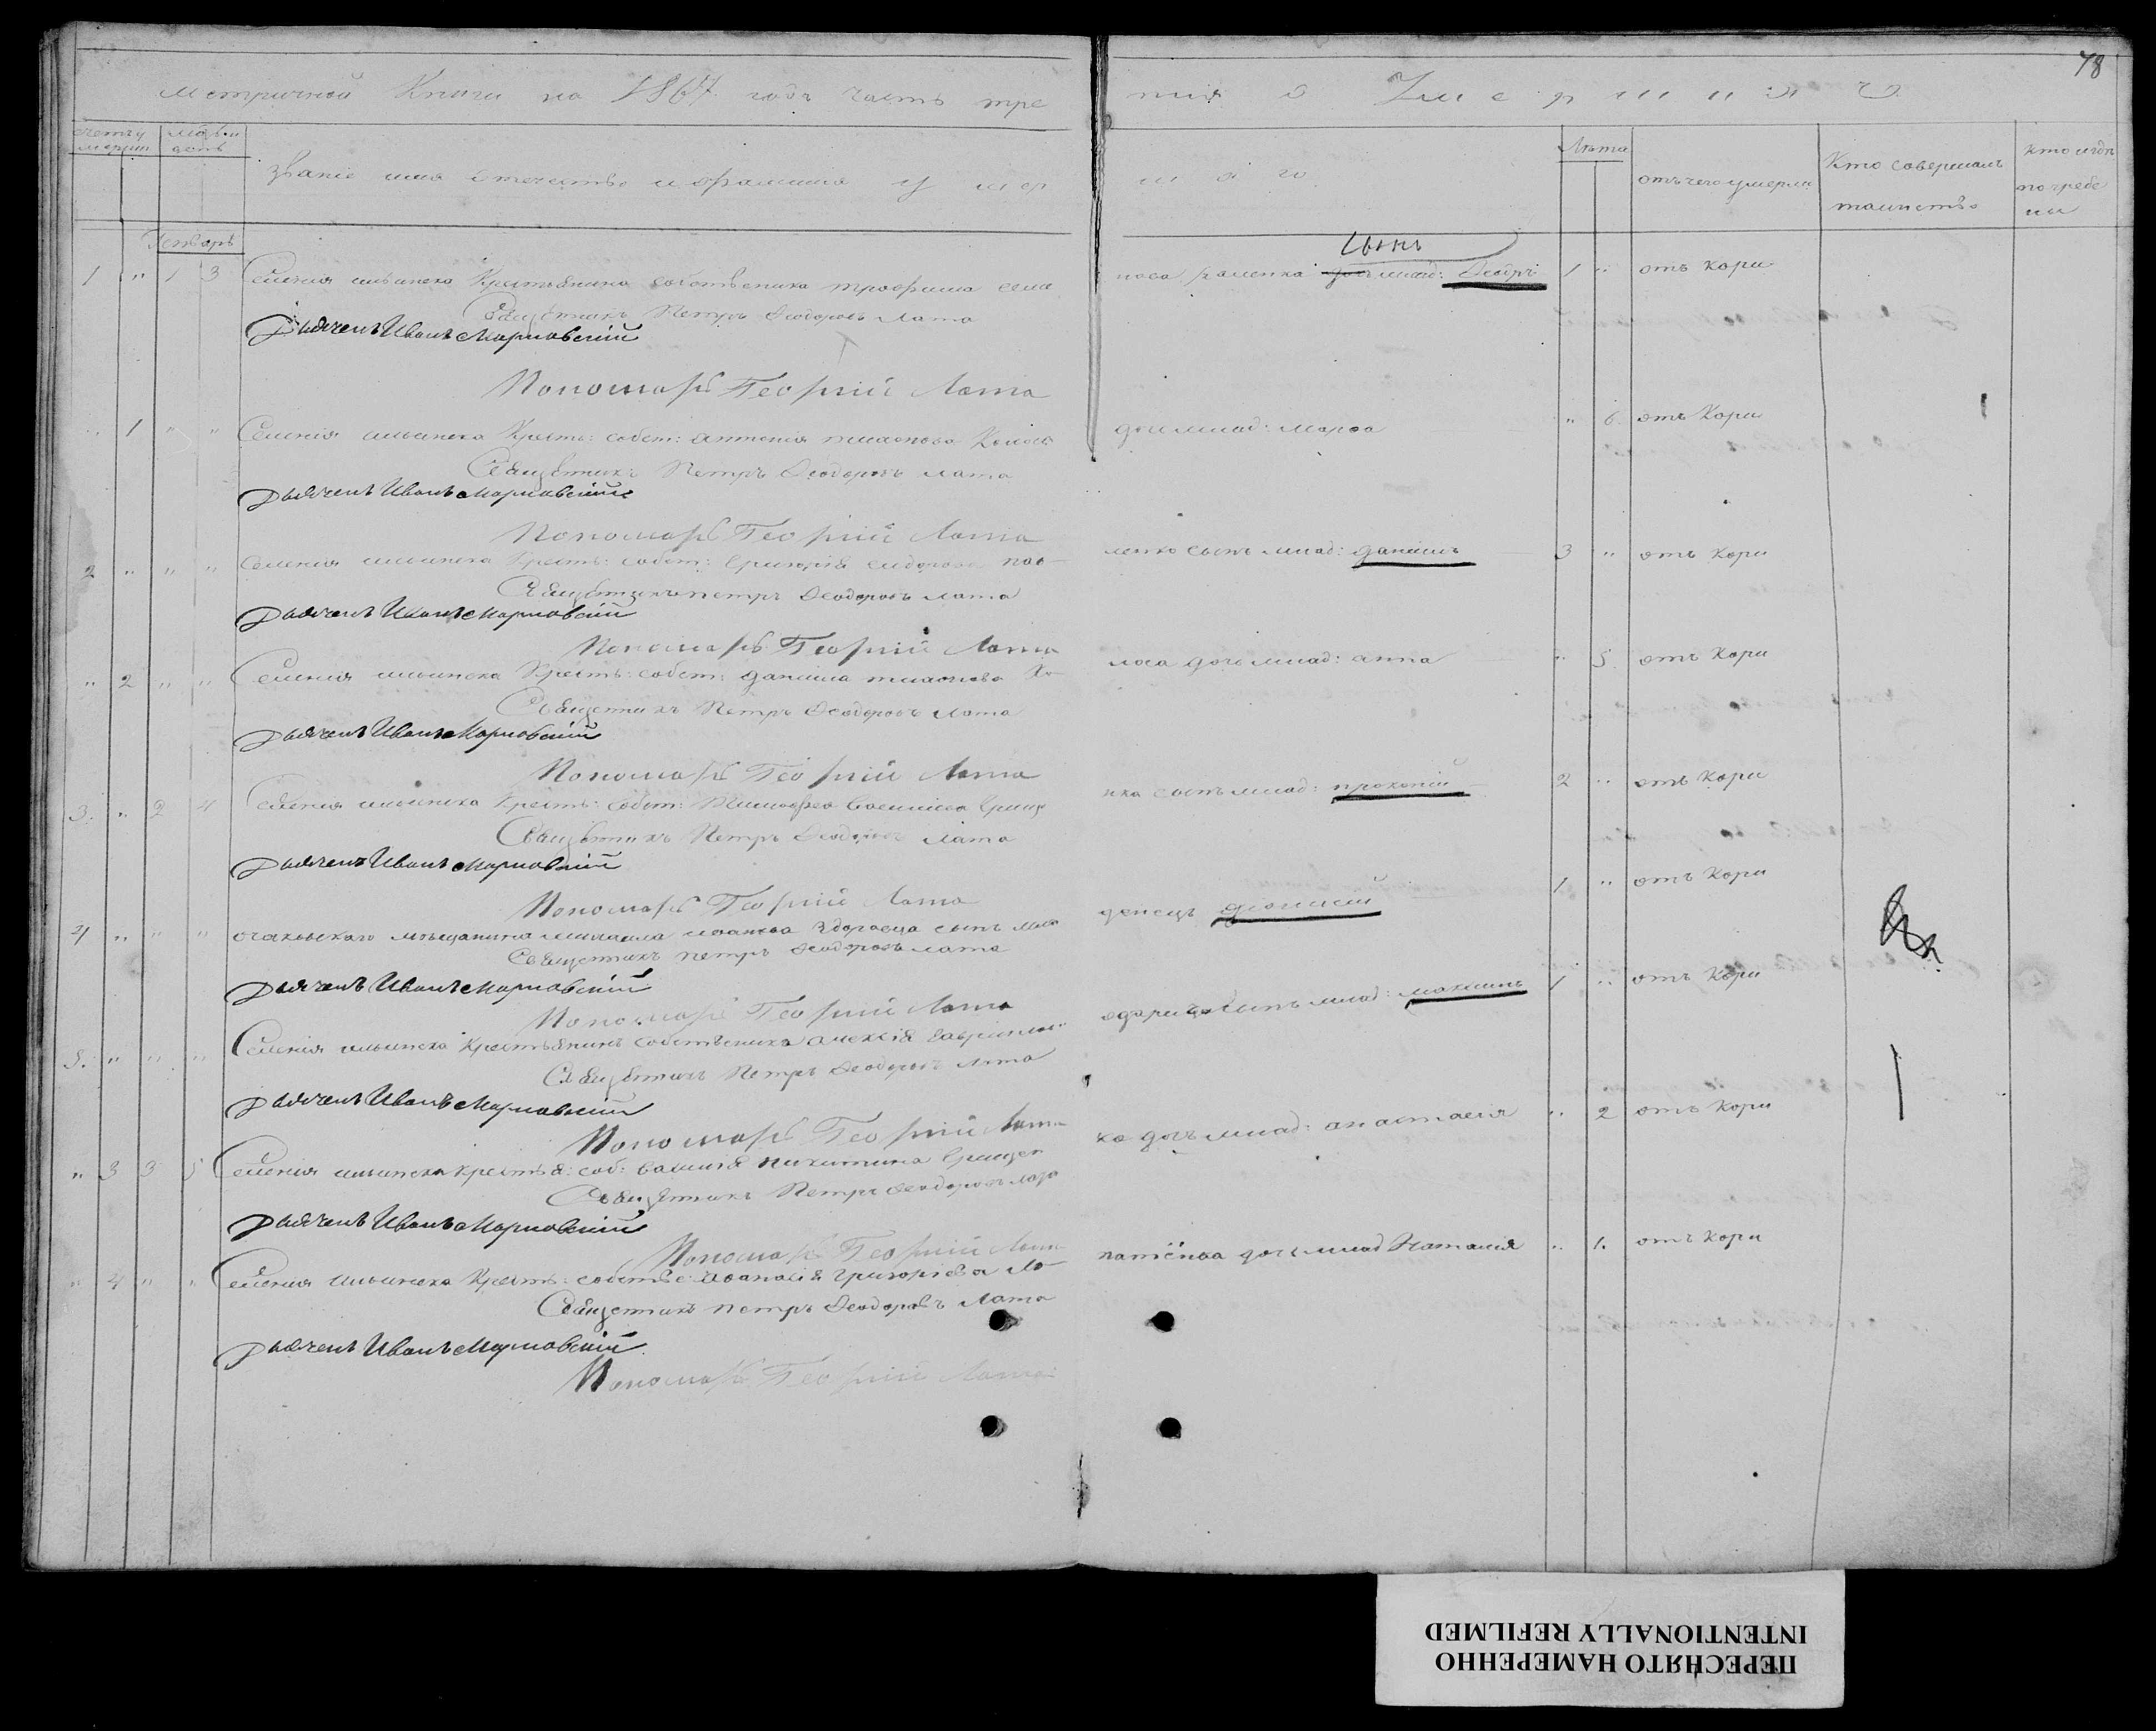 78
Метричной Книги на 1867 годъ часть тре
тия о Умершихъ
счетъ умерш
мѣся
Лѣта
звание имя отечество и фамилия умер
шаго
отъ чего умерли
Кто совершалъ таинство
кто и гдѣ погребены
Генварь
1 " 1 3 Селения ильинска Крестьянина собственика трофима семе
сынъ
нова млад: Феодръ 1 " отъ кори
Священикъ Петръ Феодоровъ Лата
Дьяченъ Иванъ
Пономарь Георгий Лата
" 1 " " Селения ильинска Кресть: собст: антония
дочь млад: марфа " 6 отъ Кори
Священикъ Петръ Феодоровъ лата
Дьяченъ Иванъ
Пономарь Георгий Лата
2 " " " Селения ильинска Кресть: собст: Григория сидорова пав
ленко сынъ млад: данiилъ 3 " отъ Кори
Священикъ петръ Феодоровъ лата
Дьяченъ Иванъ
Пономарь Георгий Лата
" 2 " " Селения ильинска Кресть: собст: данiила
дочь млад: анна " 5 отъ Кори
Священикъ Петръ Феодоровъ Лата
Дьяченъ Иванъ
Пономарь Георгий Лата
3. " 2 4 Селения ильинска Кресть: собст: Тимофея василиева Грище
нка сынъ млад: прокопий 2 " отъ Кори
Священикъ Петръ Феодоровъ Лата
Дьяченъ Иванъ
Пономарь Георгий Лата
4 " " " очаковскаго мѣщанина михаила иванова сынъ мла
денецъ дионисий 1 " отъ Кори
Священикъ петръ Феодоровъ лата
Дьяченъ Иванъ
Пономарь Георгий Лата
5. " " " Селения ильинска Крестьянинъ собственика алексiя
сынъ млад: максимъ 1 " отъ Кори
Священикъ Петръ Феодоровъ Лата
Дьяченъ Иванъ
Пономарь Георгий Лата
" 3 3 5 Селения ильинска крестья: соб: василiя никитина Грищен
ка дочь млад: анастасiя " 2 отъ Кори
Священикъ Петръ Феодоровъ лата
Дьяченъ Иванъ
Пономарь Георгий Лата
" 4 " " Селения ильинска Кресть: собстве: афанасiя Григориева
дочь млад Наталiя " 1. отъ Кори
Священикъ петръ Феодоровъ Лата
Дьяченъ Иванъ
Пономарь Георгий Лата
ПЕРЕСНЯТО НАМЕРЕННО
INTENTIONALLY REFILMED